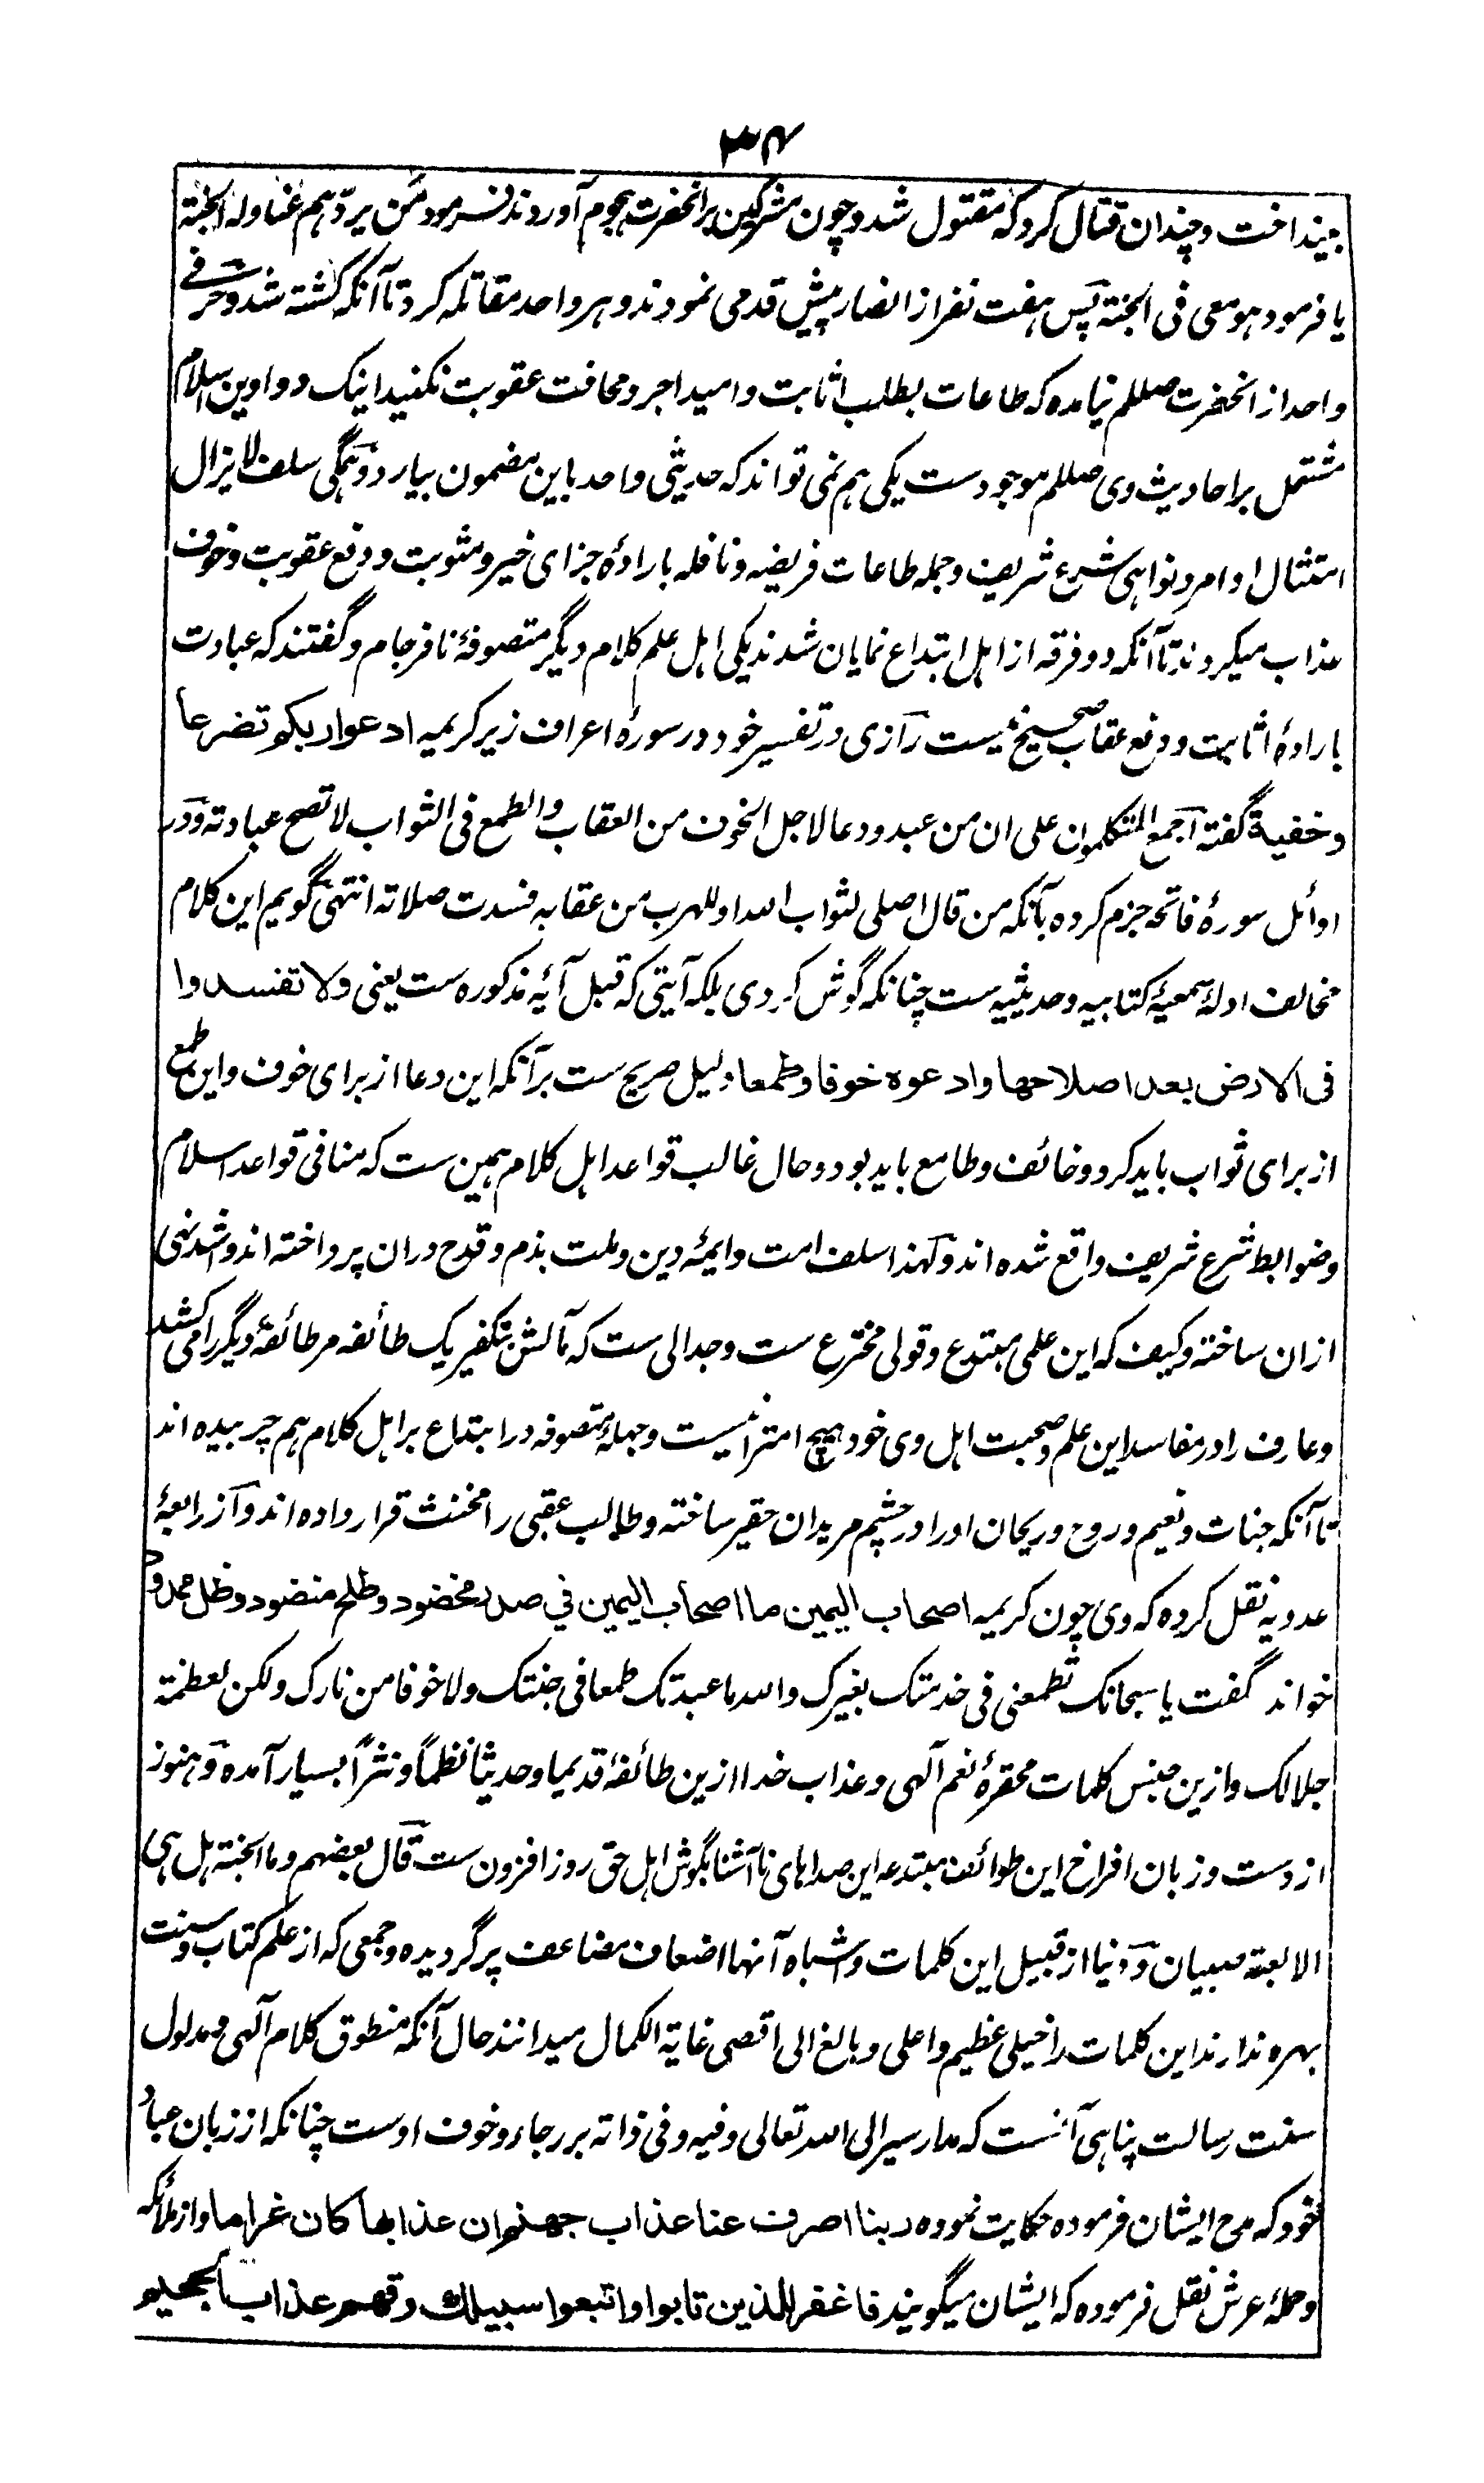 ۳۴
بینداخت و چندان قتال کرد که مقتول شد و چون مشرکین بر آنحضرت هجوم آوردند فرمود من یردهم عنا وله الجنة
یا فرمود هو معی فی الجنة پس هفت نفر از انصار پیش قدمی نمودند و هر واحد مقاتله کرد تا آنکه کشته شد و حرفے
واحد از آنحضرت صللم نیامده که طاعات بطلب اثابت و امید اجر و مخافت عقوبت نکنید اینک دواوین اسلام
مشتمل بر احادیث وی صللم موجودست یکی هم نمی تواند که حدیثی واحد باین مضمون بیارد و همگی سلف لا یزال
امتثال اوامر و نواهی شرع شریف و جمله طاعات فریضه و نافله بارادۀ جزای خیر و مثوبت و دفع عقوبت و خوف
عذاب میکردند تا آنکه دو فرقه از اهل ابتداع نمایان شدند یکی اهل علم کلام دیگر متصوفۀ نافرجام و گفتند که عبادت
بارادۀ اثابت و دفع عقاب صحیح نیست رازی در تفسیر خود در سورۀ اعراف زیر کریمه ادعوا ربکم تضرعا
وخفیة گفته اجمع المتکلمون علی ان من عبد ودعا لاجل الخوف من العقاب والطمع فی الثواب لا تصح عبادته و در
اوائل سورۀ فاتحه جزم کرده بآنکه من قال اصلی لثواب الله او للهرب من عقابه فسدت صلاته انتهی گویم این کلام
مخالف ادلۀ سمعیۀ کتابیه و حدیثیه ست چنانکه گوش کردی بلکه آیتی که قبل آیۀ مذکوره ست یعنی ولا تفسدوا
فی الارض بعد اصلاحها وادعوه خوفا وطمعا دلیل صریح ست بر آنکه این دعا از برای خوف و این طمع
از برای ثواب باید کرد و خائف و طامع باید بود و حال غالب قواعد اهل کلام همین ست که منافی قواعد اسلام
و ضوابط شرع شریف واقع شده اند و لهذا سلف امت و ایمۀ دین و ملت بذم و قدح دران پرداخته اند و اشد نهی
ازان ساخته و کیف که این علمی مبتدع و قولی مخترع ست و جدالی ست که مآلش بتکفیر یک طائفه مر طائفۀ دیگر را می کشد
و عارف را در مفاسد این علم و صحبت اهل وی خود هیچ امترا نیست و جهلۀ متصوفه در ابتداع بر اهل کلام هم چربیده اند
تا آنکه جنات و نعیم و روح و ریحان او را در چشم مریدان حقیر ساخته و طالب عقبی را مخنث قرار داده اند و از رابعۀ
عدویه نقل کرده که وی چون کریمه اصحاب الیمین ما اصحاب الیمین فی سدر مخضود وطلح منضود وظل ممدود
خواند گفت یا سبحانک تطمعنی فی خدمتک بغیرک والله ما عبدتک طمعا فی جنتک ولا خوفا من نارک ولکن لعظمة
جلالک و ازین جنس کلمات محقرۀ نعم آلهی و عذاب خدا ازین طائفۀ قدیما و حدیثا نظماً و نثراً بسیار آمده و هنوز
از دست و زبان افراخ این طوائف مبتدعه این صداهای ناآشنا بگوش اهل حق روز افزون ست قال بعضهم وما الجنة هل هی
الا لعبة صبیان و دنیا از قبیل این کلمات و اشباه آنها اضعاف مضاعف پر گردیده و جمعی که از علم کتاب و سنت
بهره ندارند این کلمات را خیلی عظیم و اعلی و بالغ الی اقصی غایة الکمال میدانند حال آنکه منطوق کلام آلهی و مدلول
سنت رسالت پناهی آنست که مدار سیر الی الله تعالی و فیه و فی ذاته بر رجاء و خوف اوست چنانکه از زبان عباد
خود که مدح ایشان فرموده حکایت نموده ربنا اصرف عنا عذاب جهنم ان عذابها کان غراما و از ملائکه
و حملۀ عرش نقل فرموده که ایشان میگویند فاغفر للذین تابوا واتبعوا سبیلک وقهم عذاب الجحیم